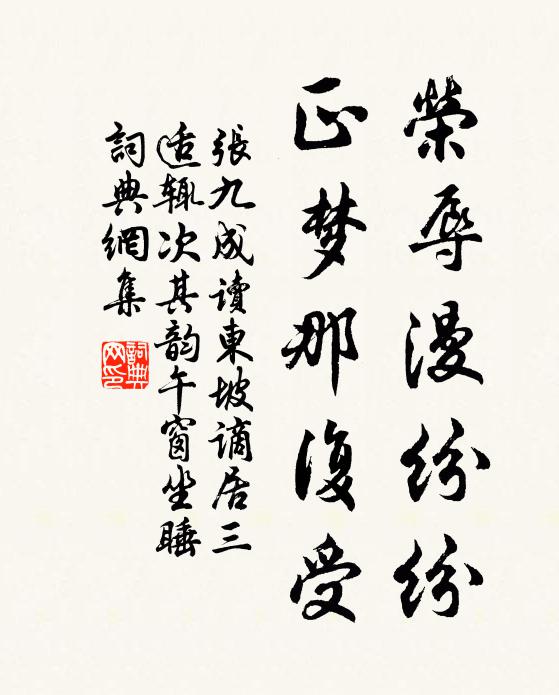 榮辱漫紛紛
正梦那復受
張九成讀東坡謫居三
适輙次其韵午窗坐睡
詞典網集
詞典
网印